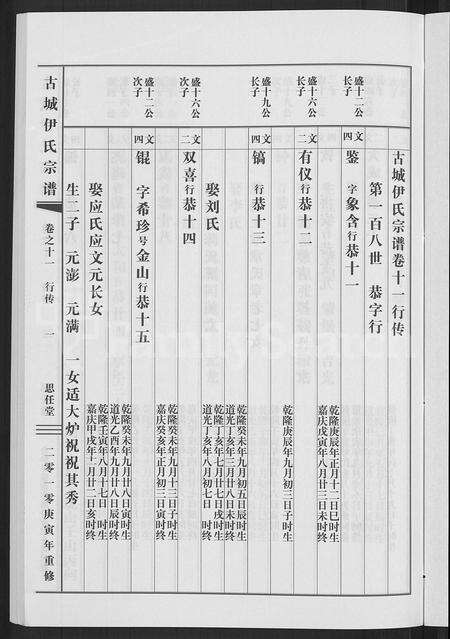 古城伊氏宗谱卷十一行传
第一百八世 恭字行
盛十二公长子
文四 鉴 字象含行恭十一
乾隆庚辰年正月十二日巳时生
嘉庆戊寅年八月廿三日未时终
盛十六公长子
文二 有仪行恭十二
乾隆庚辰年九月初三日子时生
盛十九公长子
文四 镐 行恭十三
盛十六公次子
文二 双喜行恭十四
乾隆癸未年九月初五日辰时生
道光丁亥年三月廿八日未时终
娶刘氏
乾隆丁亥年七月廿七日戌时生
道光丁亥年八月初七日 时终
盛十二公次子
文四 锟 字希珍号金山行恭十五
乾隆癸未年九月十三日子时生
嘉庆癸亥年正月初三日寅时终
娶应氏应文元长女
乾隆癸未年九月廿八日寅时生
道光乙酉年九月廿八日辰时终
乾隆壬寅年八月十七日 时生
嘉庆甲戌年十二月廿二日亥时终
生二子 元澎 元满 一女适大炉祝祝其秀
古城伊氏宗谱
卷之十一 行传 一 思任堂
二〇一〇庚寅年重修